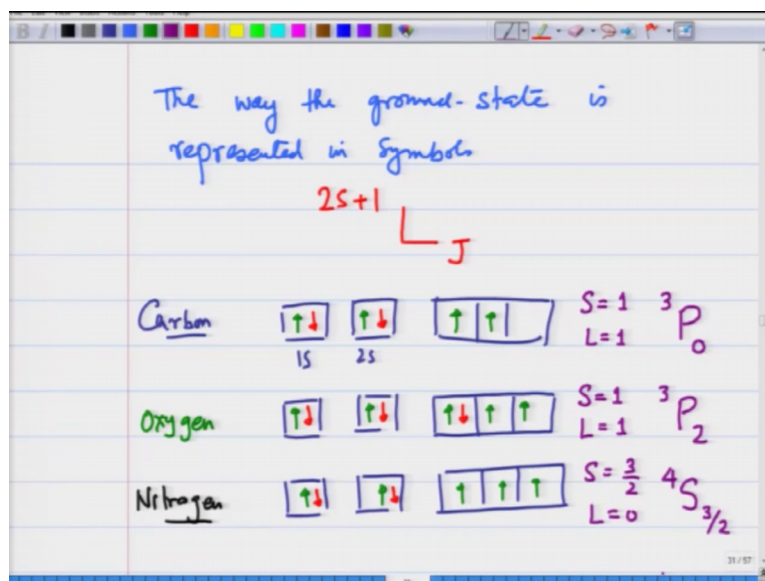 B I
The way the ground-state is
represented in Symbols
2S+1
L J
Carbon ↑↓ ↑↓ ↑ ↑ S=1 ³P₀
L=1
1S 2S
Oxygen ↑↓ ↑↓ ↑↓ ↑ ↑ S=1 ³P₂
L=1
Nitrogen ↑↓ ↑↓ ↑ ↑ ↑ S=3/2 ⁴S₃/₂
L=0
31/57